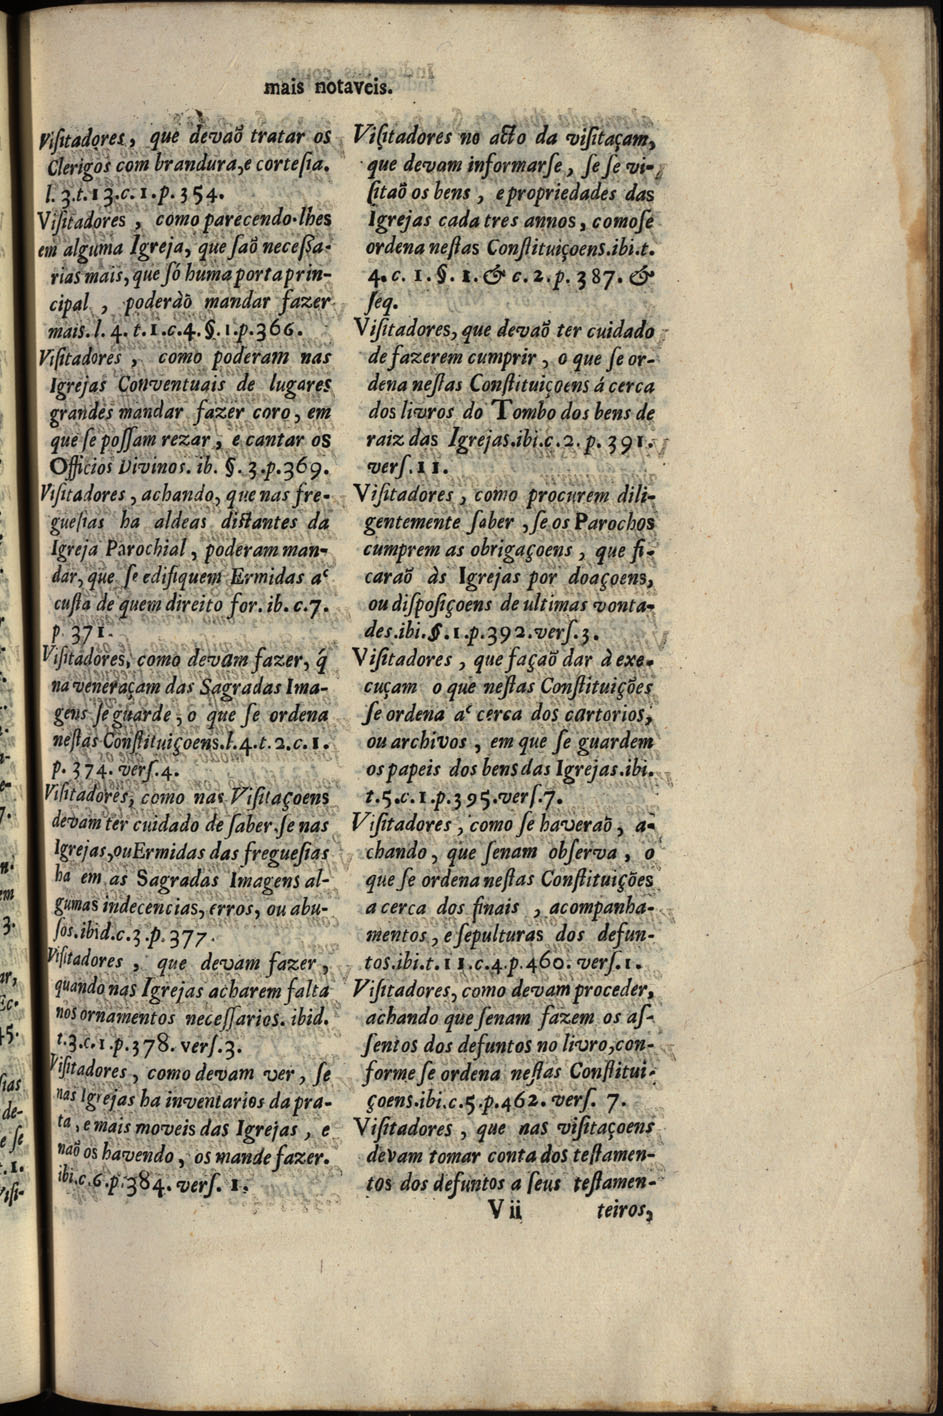 mais notaveis.
Viſitadores, que devaõ tratar os
Clerigos com brandura, e corteſia.
l. 3. t. 13. c. 1. p. 354.
Viſitadores, como parecendo-lhes
em alguma Igreja, que ſaõ neceſſa-
rias mais, que ſó huma porta prin-
cipal, poderàõ mandar fazer
mais. l. 4. t. 1. c. 4. §. 1. p. 366.
Viſitadores, como poderam nas
Igrejas Conventuais de lugares
grandes mandar fazer coro, em
que ſe poſſam rezar, e cantar os
Officios Divinos. ib. §. 3. p. 369.
Viſitadores, achando, que nas fre-
gueſias ha aldeas diſtantes da
Igreja Parochial, poderam man-
dar, que ſe edifiquem Ermidas a'
cuſta de quem direito for. ib. c. 7.
p. 371.
Viſitadores, como devam fazer, q́
na veneraçam das Sagradas Ima-
gens ſe guarde, o que ſe ordena
neſtas Conſtituiçoens. l. 4. t. 2. c. 1.
p. 374. verſ. 4.
Viſitadores, como nas Viſitaçoens
devam ter cuidado de ſaber. ſe nas
Igrejas, ou Ermidas das fregueſias
ha em as Sagradas Imagens al-
gumas indecencias, erros, ou abu-
ſos. ibid. c. 3. p. 377.
Viſitadores, que devam fazer,
quando nas Igrejas acharem falta
nos ornamentos neceſſarios. ibid.
t. 3. c. 1. p. 378. verſ. 3.
Viſitadores, como devam ver, ſe
nas Igrejas ha inventarios da pra-
ta, e mais moveis das Igrejas, e
naõ os havendo, os mande fazer.
ibi. c. 6. p. 384. verſ. 1.
Viſitadores no acto da viſitaçam,
que devam informarſe, ſe ſe vi-
ſitaõ os bens, e propriedades das
Igrejas cada tres annos, como ſe
ordena neſtas Conſtituiçoens. ibi. t.
4. c. 1. §. 1. & c. 2. p. 387. &
ſeq.
Viſitadores, que devaõ ter cuidado
de fazerem cumprir, o que ſe or-
dena neſtas Conſtituiçoens á cerca
dos livros do Tombo dos bens de
raiz das Igrejas. ibi. c. 2. p. 391.
verſ. 11.
Viſitadores, como procurem dili-
gentemente ſaber, ſe os Parochos
cumprem as obrigaçoens, que fi-
caraõ às Igrejas por doaçoens,
ou diſpoſiçoens de ultimas vonta-
des. ibi. §. 1. p. 392. verſ. 3.
Viſitadores, que façaõ dar à exe-
cuçam o que neſtas Conſtituições
ſe ordena a' cerca dos cartorios,
ou archivos, em que ſe guardem
os papeis dos bens das Igrejas. ibi.
t. 5. c. 1. p. 395. verſ. 7.
Viſitadores, como ſe haveraõ, a-
chando, que ſenam obſerva, o
que ſe ordena neſtas Conſtituições
a cerca dos ſinais, acompanha-
mentos, e ſepulturas dos defun-
tos. ibi. t. 11. c. 4. p. 460. verſ. 1.
Viſitadores, como devam proceder,
achando que ſenam fazem os aſ-
ſentos dos defuntos no livro, con-
forme ſe ordena neſtas Conſtitui-
çoens. ibi. c. 5. p. 462. verſ. 7.
Viſitadores, que nas viſitaçoens
devam tomar conta dos teſtamen-
tos dos defuntos a ſeus teſtamen-
V ii teiros,